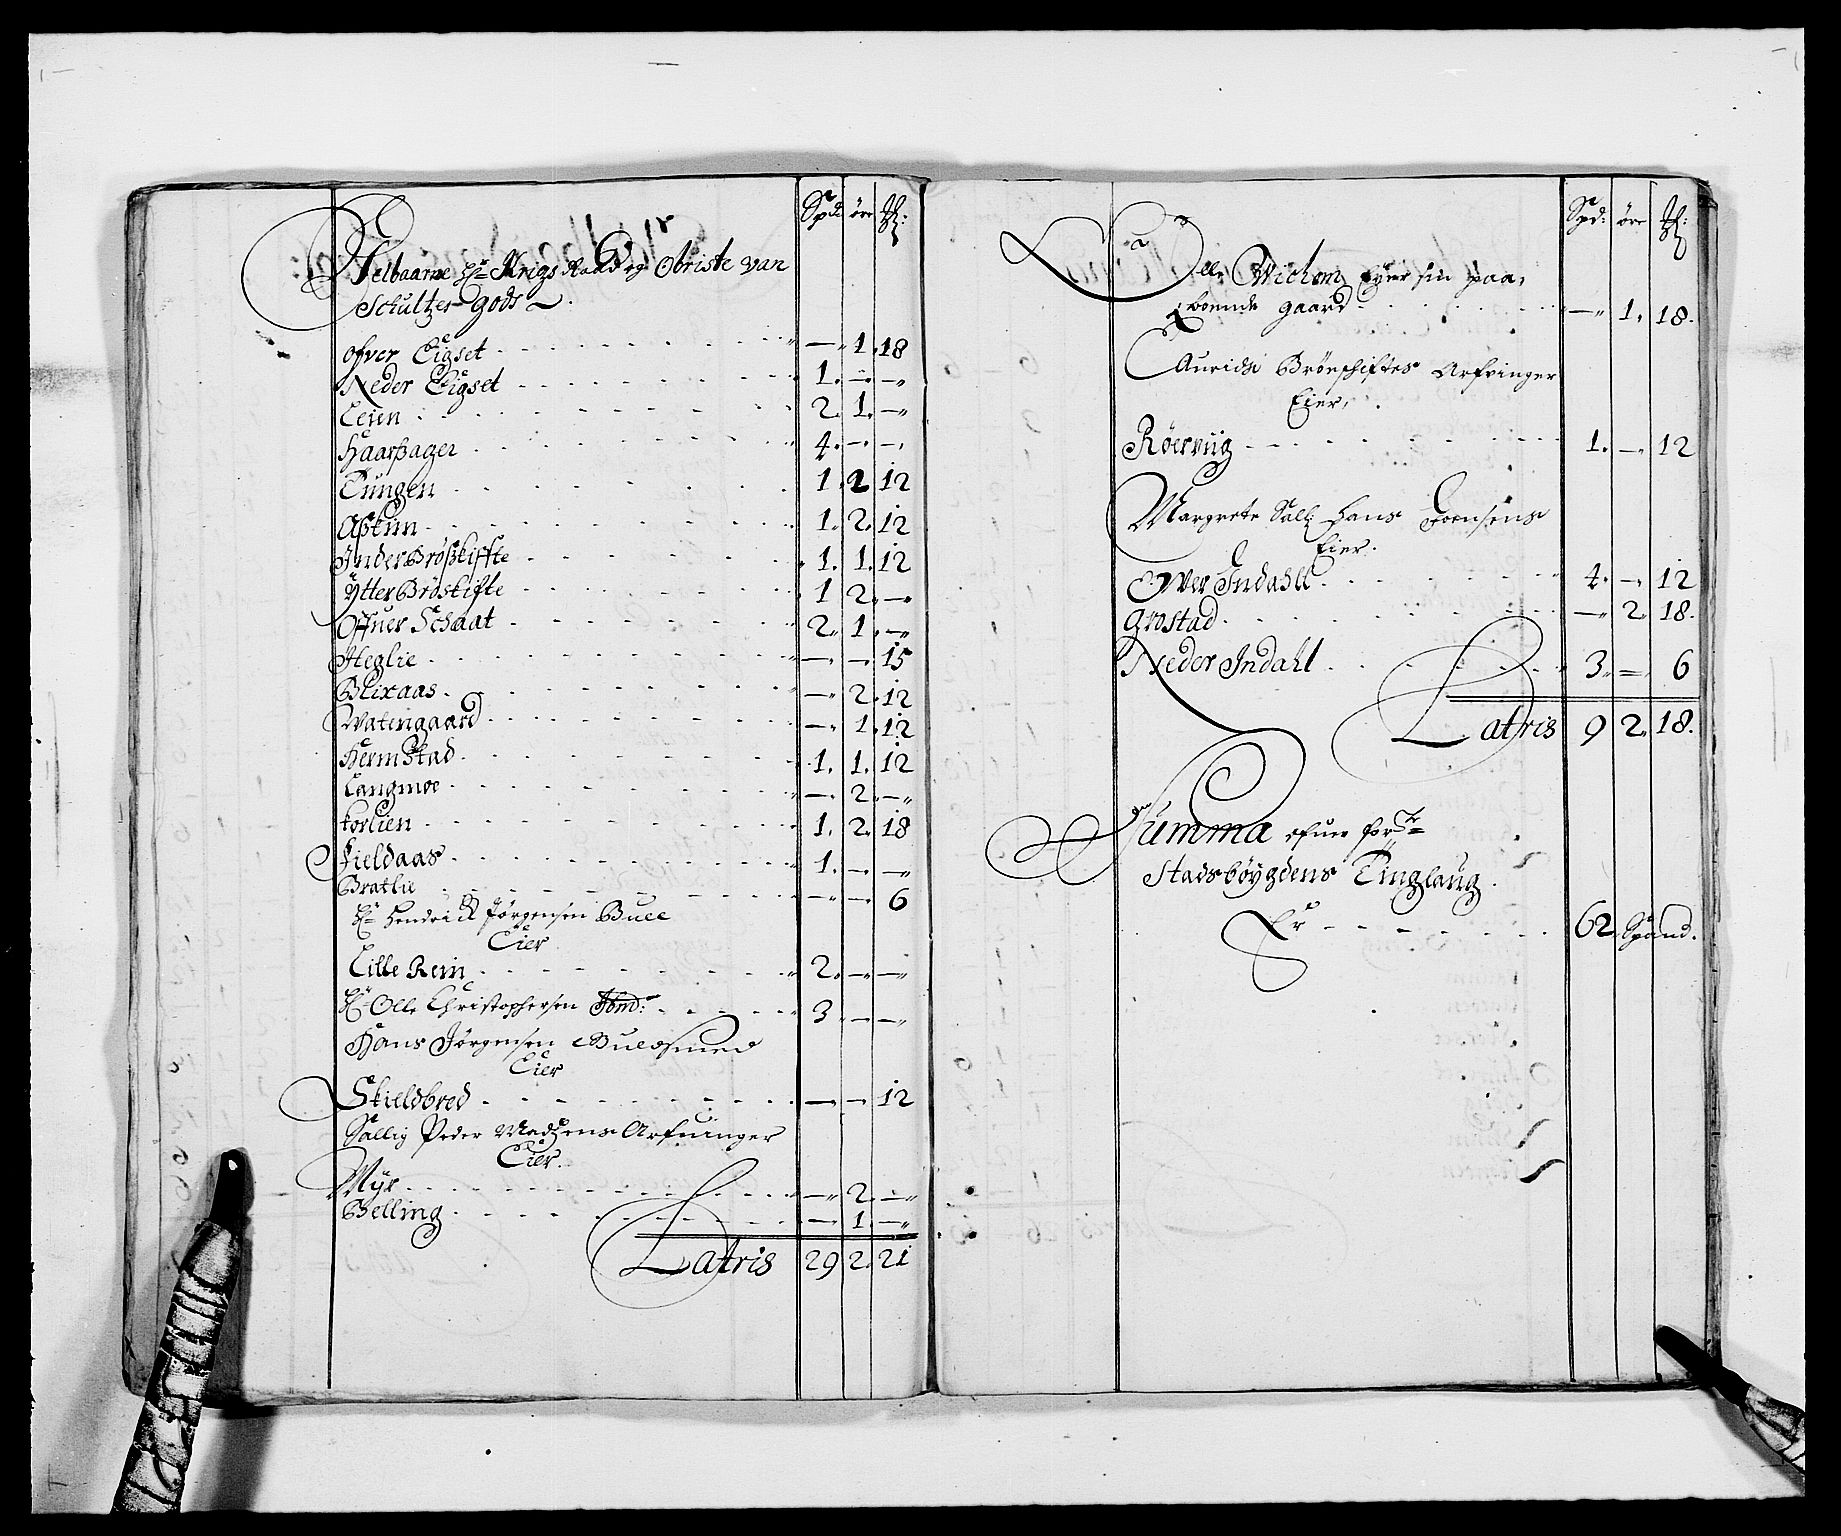 Spd: øre ℳ:
Velbaarne Hr Krigs Raad og Obriste van
Schultzes gods
ofver Eigset — 1. 18
Neder Eigset 1. — —
Leien 2. 1. —
Haarßager 4. — —
Tungen 1. 2. 12
Askim 1. 2. 12
Inder Brößkiffte 1. 1. 12
Ytter Bröskifte 1 2. —
Offuer Schaat 2. 1. —
Heglie — — 15
Blixaas — 2. 12
Watengaard — 1. 12
Hermstad 1. 1. 12
Langmoe — 2. —
korlien 1. 2. 18
Fieldaas 1. — —
Bratlie — — 6
Hr Hendrick Jørgensen Buee
Eier
Lille Rein 2. — —
Hr Olle Christophersen 3 — —
Hans Jørgensen Buldsmed
Eier
Skieldbred — — 12
Sallig Peder Madzens Arfuinger
Eier.
Myr — 2. —
Belling — 1. —
Latris 29 2. 21
Spd: øre ℳ:
Olle Wichem Eyer sin paa
boende gaard — 1. 18.
Aurids Brøeschiftes Arfvinger
Eier.
Röervig 1. — 12
Margrete Sall: Hans Joensens
Eier.
Ofver Indahl 4. — 12
Grostad — 2. 18.
Neder Indahl 3. — 6
Latris 9 2. 18.
Summa ofuer for
Stadsböygdens Tinglaug.
Er 62 Spand.